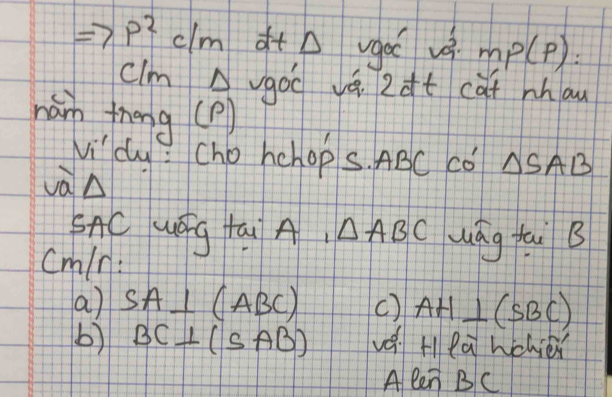 => P² c/m đt Δ vgóc vớ. mp(P):
C/m Δ vgóc vớ. 2đt cắt nhau
nằm trong (P)
Ví dụ: Cho hchóp S.ABC có ΔSAB
và Δ
SAC vuông tại A, ΔABC vuông tại B
Cm/r:
a) SA ⊥ (ABC)
b) BC ⊥ (SAB)
c) AH ⊥ (SBC)
vớ. H là hchiếu
A lên BC